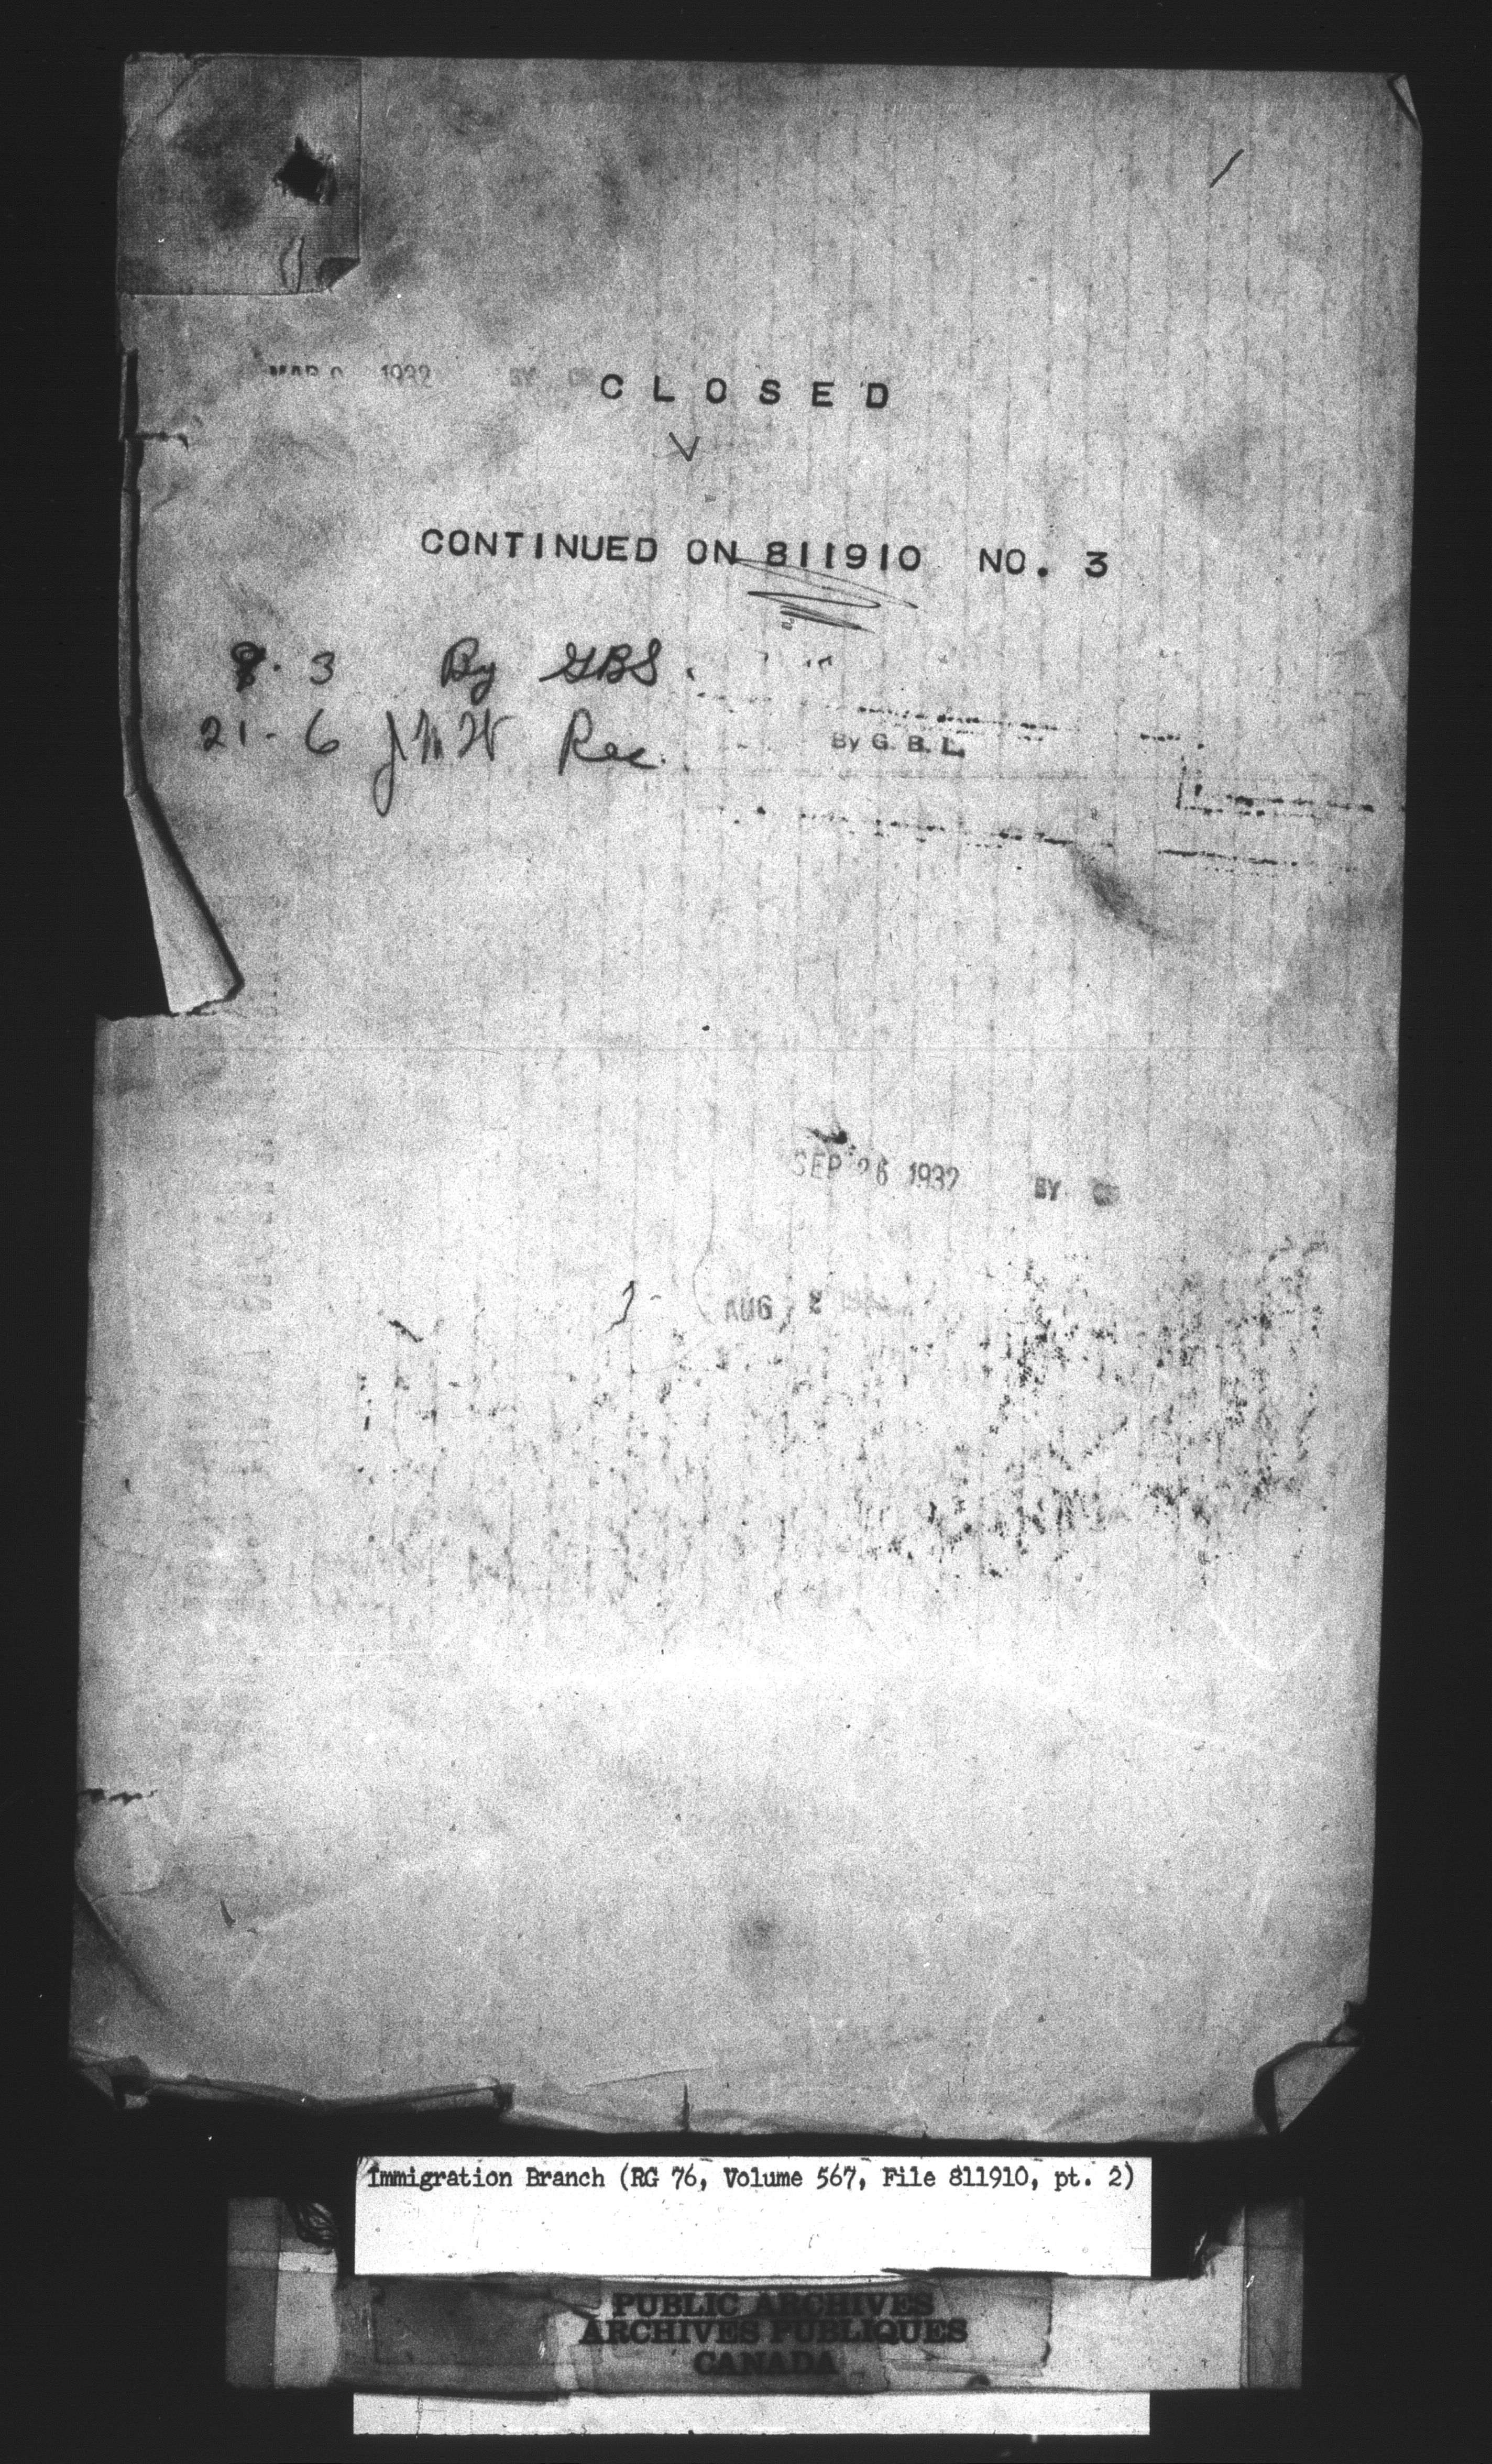 1932 BY
CLOSED
CONTINUED ON 811910 NO. 3
8. 3 By GBS.
21-6 Rec.
By G. B. L.
SEP 26 1932 BY
AUG 2
Immigration Branch (RG 76, Volume 567, File 811910, pt. 2)
PUBLIC ARCHIVES
ARCHIVES PUBLIQUES
CANADA